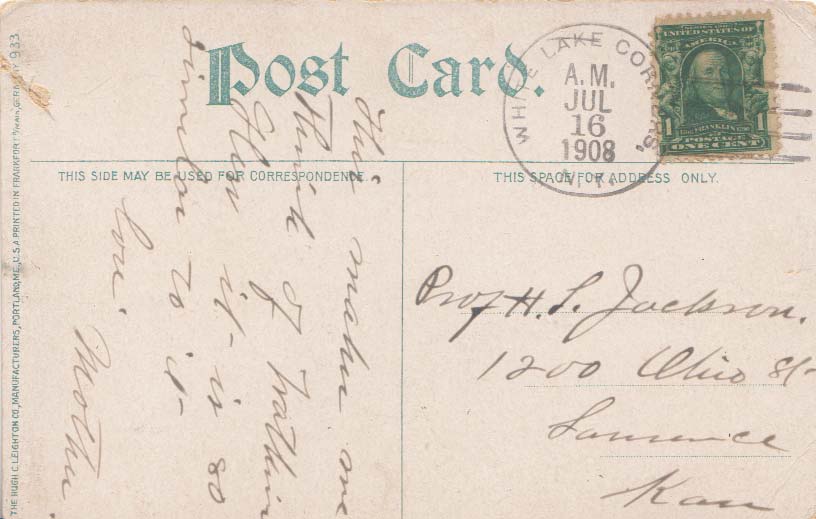 Post Card.
THIS SIDE MAY BE USED FOR CORRESPONDENCE.
THIS SPACE FOR ADDRESS ONLY.
WHITE LAKE CORNERS,
A.M.
JUL
16
1908
N.Y.
SERIES 1902
UNITED STATES OF
AMERICA
1 FRANKLIN 1
POSTAGE
ONE CENT
This makes me
Think of
How it is so
similar to it-
Love.
Mother
Prof H. S. Jackson.
1200 Ohio St-
Lawrence
Kan
THE HUGH C. LEIGHTON CO., MANUFACTURERS, PORTLAND, ME., U.S.A. PRINTED IN FRANKFORT A/MAIN, GERMANY 933